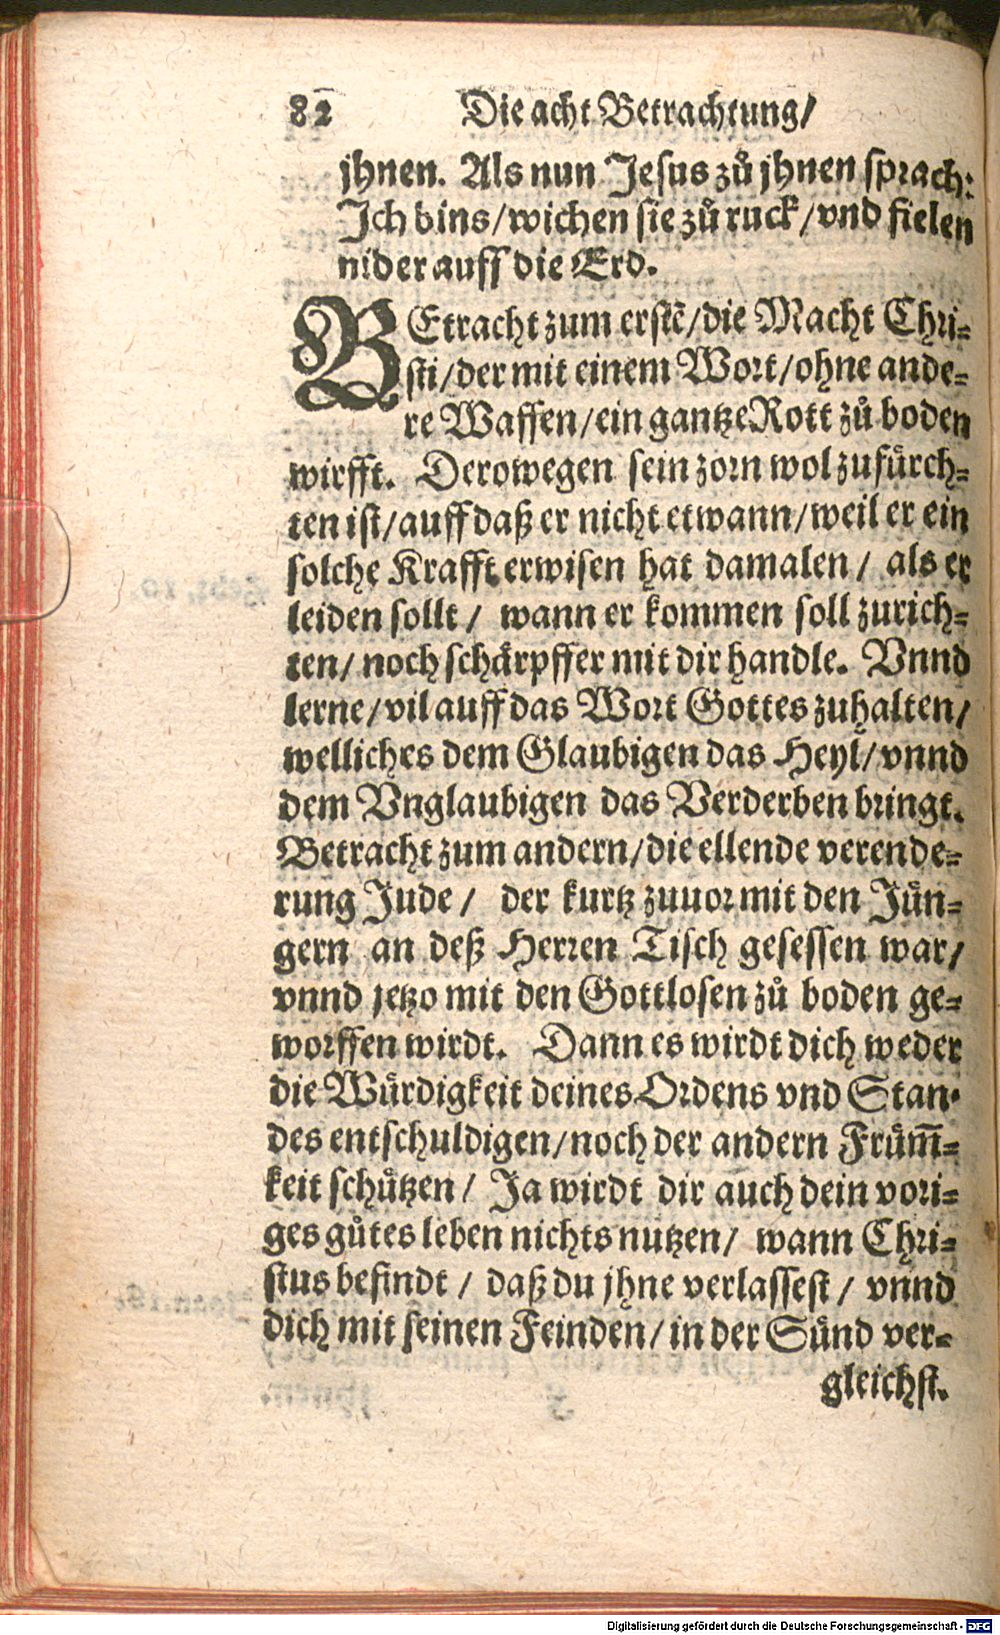 82 Die acht Betrachtung/
jhnen. Als nun Jesus zů jhnen sprach:
Ich bins/wichen sie zů ruck/vnd fielen
nider auff die Erd.
BEtracht zum erstē/die Macht Chri-
sti/der mit einem Wort/ohne ande-
re Waffen/ein gantze Rott zů boden
wirfft. Derowegen sein zorn wol zufürch-
ten ist/auff daß er nicht etwann/weil er ein
solche Krafft erwisen hat damalen/ als er
leiden sollt/ wann er kommen soll zurich-
ten/ noch schärpffer mit dir handle. Vnnd
lerne/vil auff das Wort Gottes zuhalten/
welliches dem Glaubigen das Heyl/vnnd
dem Vnglaubigen das Verderben bringt.
Betracht zum andern/die ellende verende-
rung Jude/ der kurtz zuuor mit den Jün-
gern an deß Herren Tisch gesessen war/
vnnd jetzo mit den Gottlosen zů boden ge-
worffen wirdt. Dann es wirdt dich weder
die Würdigkeit deines Ordens vnd Stan-
des entschuldigen/noch der andern Früm̄-
keit schützen/ Ja wirdt dir auch dein vori-
ges gůtes leben nichts nutzen/ wann Chri-
stus befindt/ daß du jhne verlassest/ vnnd
dich mit seinen Feinden/in der Sünd ver-
gleichst.
Digitalisierung gefördert durch die Deutsche Forschungsgemeinschaft - DFG